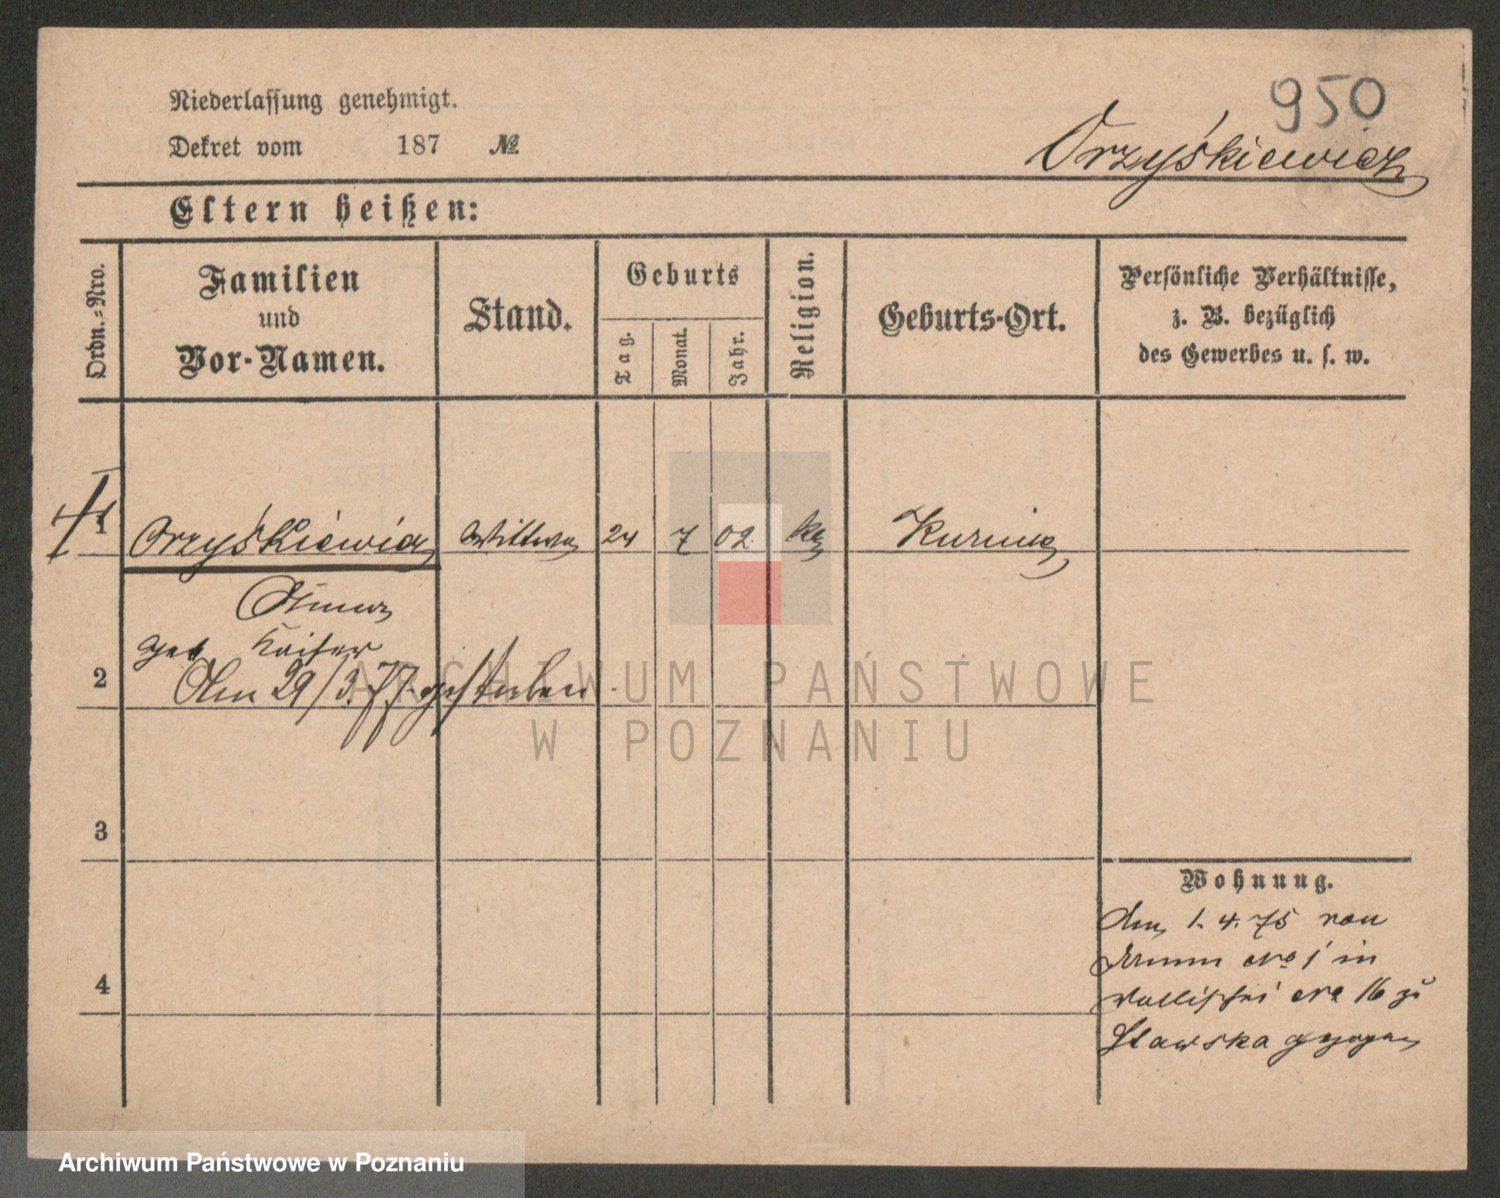 950
Niederlassung genehmigt.
Dekret vom 187 №
Orzyskiewicz
Eltern heißen:
Ordn.-Nro.
Familien
und
Vor-Namen.
Stand.
Geburts
Tag.
Monat.
Jahr.
Religion.
Geburts-Ort.
Persönliche Verhältnisse,
z. B. bezüglich
des Gewerbes u. s. w.
1 Orzyskiewicz Wittwe 24 7 02 Kurnik
geb. Kaiser
2 Am 29/3.77. gestorben.
3
Wohnung.
den 1. 4. 75 von
No 1 in
4
Wallischei No 16 zu
Stawska gezogen
ARCHIWUM PAŃSTWOWE
W POZNANIU
Archiwum Państwowe w Poznaniu